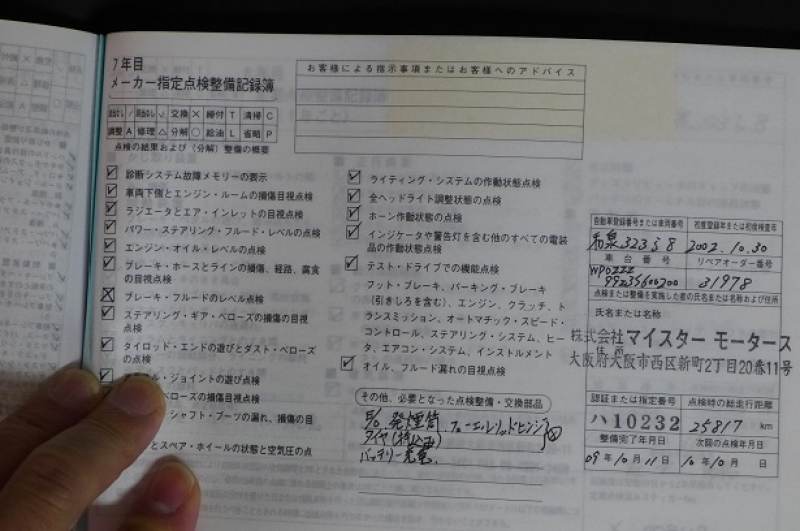 7年目
メーカー指定点検整備記録簿
お客様による指示事項またはお客様へのアドバイス
交換 × 締付 T 清掃 C
調整 A 修理 △ 分解 ○ 給油 L 省略 P
点検の結果および(分解)整備の概要
診断システム故障メモリーの表示
車両下側とエンジン・ルームの損傷目視点検
ラジエータとエア・インレットの目視点検
パワー・ステアリング・フルード・レベルの点検
エンジン・オイル・レベルの点検
ブレーキ・ホースとラインの損傷、経路、腐食
の目視点検
ブレーキ・フルードのレベル点検
ステアリング・ギア・ベローズの損傷の目視
点検
タイロッド・エンドの遊びとダスト・ベローズ
の点検
ジョイントの遊び点検
ベローズの損傷目視点検
シャフト・ブーツの漏れ、損傷の目
とスペア・ホイールの状態と空気圧の点
ライティング・システムの作動状態点検
全ヘッドライト調整状態の点検
ホーン作動状態の点検
インジケータや警告灯を含む他のすべての電装
品の作動状態点検
テスト・ドライブでの機能点検
フット・ブレーキ、パーキング・ブレーキ
(引きしろを含む)、エンジン、クラッチ、ト
ランスミッション、オートマチック・スピード・
コントロール、ステアリング・システム、ヒー
タ、エアコン・システム、インストルメント
オイル、フルード漏れの目視点検
その他、必要となった点検整備・交換部品
E/O 発煙筒
タイヤ(持込み)
バッテリー充電
自動車登録番号または車両番号 初度登録年または初度検査年
和泉 323 2002.10.30
車台番号 リペアオーダー番号
WP0ZZZ
31978
点検または整備を実施した者の氏名または名称および住所
氏名または名称
株式会社マイスター モータース
住所
大阪府大阪市西区新町2丁目20番11号
認証または指定番号 点検時の総走行距離
ハ10232 25817 km
整備完了年月日 次回の点検年月日
09年10月11日 10年10月 日